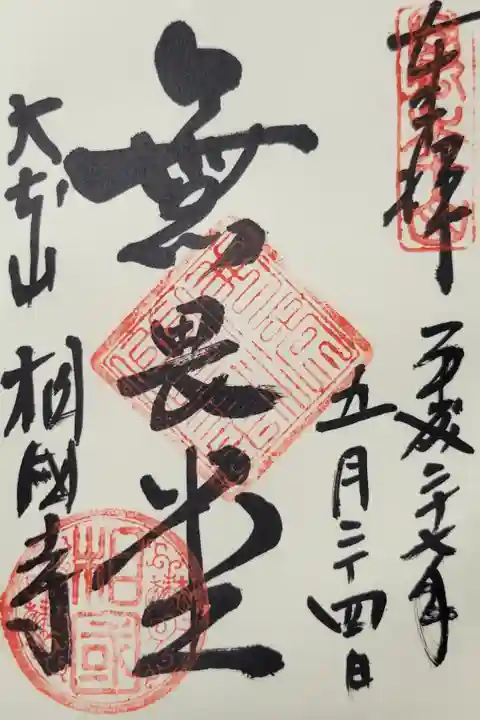 奉拝
平成二十七年
五月二十四日
無畏堂
大本山 相國寺
相
國